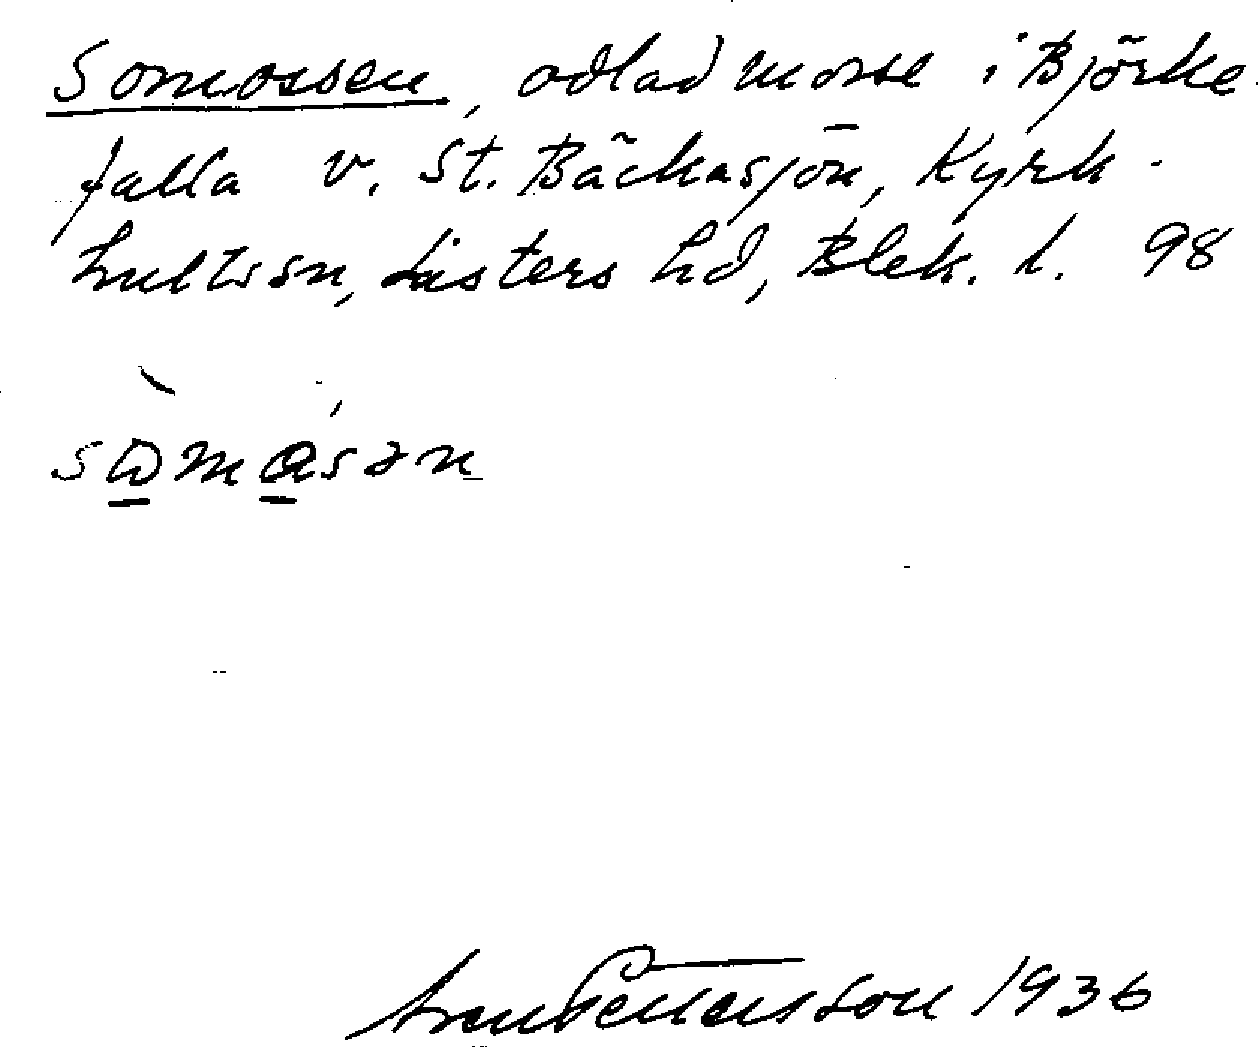 Somossen, odlad mosse i Björke-
falla v. St. Bäckasjön, Kyrk-
hults sn, Listers hd, Blek. l. 98
sωmåsən
Pettersson 1936